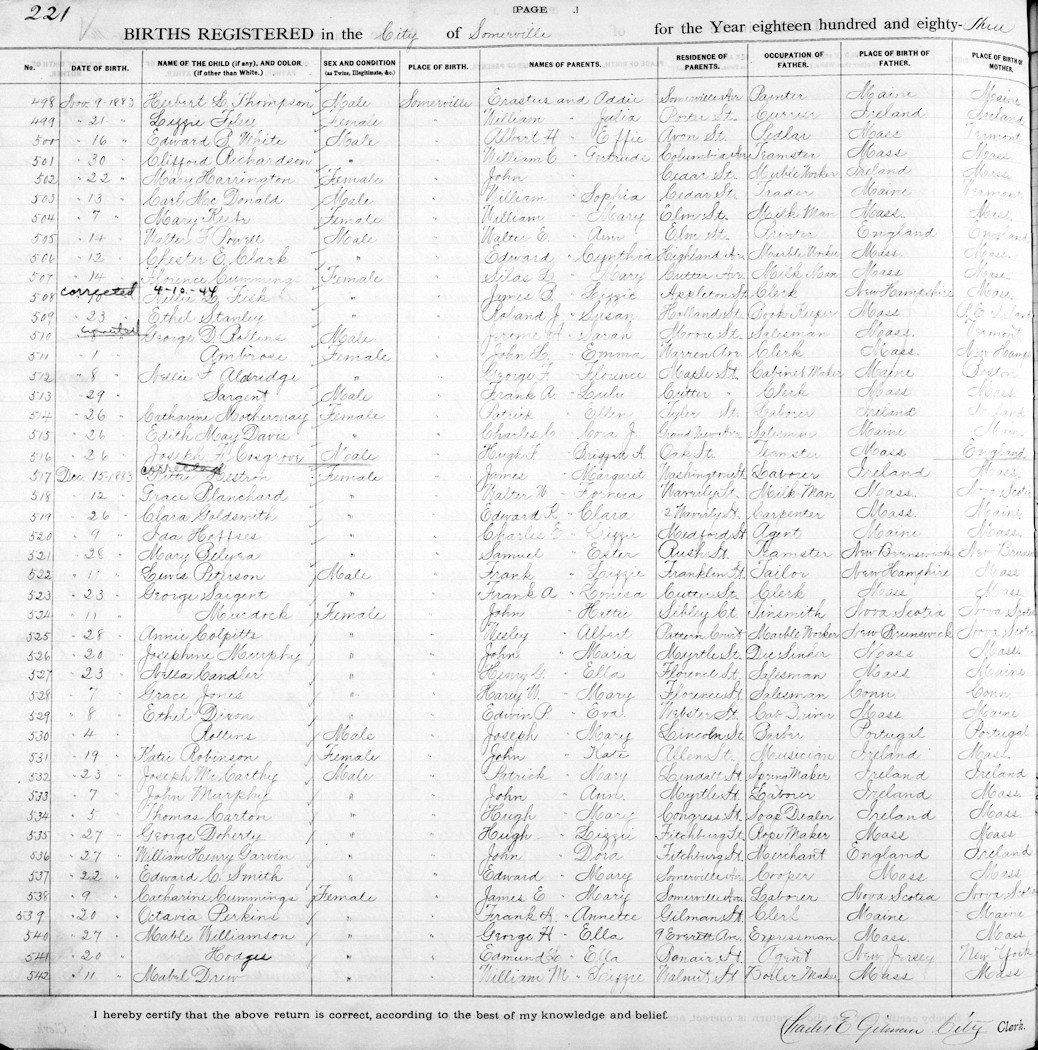 221
[PAGE .]
BIRTHS REGISTERED in the City of Somerville for the Year eighteen hundred and eighty-Three
No. DATE OF BIRTH. NAME OF THE CHILD (if any), AND COLOR (if other than White.) SEX AND CONDITION (as Twins, Illegitimate, &c.) PLACE OF BIRTH. NAMES OF PARENTS. RESIDENCE OF PARENTS. OCCUPATION OF FATHER. PLACE OF BIRTH OF FATHER. PLACE OF BIRTH OF MOTHER.
498 Nov 9-1883 Herbert L. Thompson Male Somerville Erastus and Addie Somerville Av Painter Maine Maine
499 " 21 " Lizzie Female " William " Julia Porter St. Currier Ireland Ireland
500 " 16 " Edward S. White Male " Albert H " Effie Avon St. Pedlar Mass Vermont
501 " 30 " Clifford Richardson " " William C " Gertrude Columbia Av Teamster Mass Mass
502 " 22 " Mary Harrington Female " John " Cedar St. Worker Ireland Mass
503 " 13 " Carl Mc Donald Male " William " Sophia Cedar St. Trader Maine Vermont
504 " 7 " Mary Female " William " Mary Elm St. Milk Man Mass. Mass.
505 " 14 " Walter F. Powell Male " Walter E. " Elm St. Printer England England
506 " 12 " Chester E. Clark " " Edward " Cynthia Highland Av Marble Worker Mass. Mass.
507 " 14 " Florence Cummings Female " Silas " Mary Cutter Ave Milk Man Mass Mass
corrected 4-10-44
508 Nellie Fisk " " James P. " Lizzie Appleton St. Clerk New Hampshire Mass.
509 " 23 " Ethel Stanley " " Roland J. " Susan Holland St. Book Keeper Mass
corrected
510 George D. Rollins Male " Jerome " Sarah Moore St. Salesman Mass. Vermont
511 " 1 " Ambrose Female " John " Emma Warren Ave Clerk Mass. New Hamp
512 " 8 " Nellie F. Aldridge " " George F. " Florence Maple St. Cabinet Maker Maine Boston
513 " 29 " Sargent Male " Frank A. " Lulu Cutter " Clerk Mass Mass.
514 " 26 " Catharine Motherway Female " Patrick " Ellen Tyler St. Laborer Ireland Ireland
515 " 26 " Edith May Davis " " Charles C. " Cora J. Grand View Av. Salesman Maine
516 " 26 " Joseph F. Cosgrove Male " Hugh F. " Oak St. Teamster Mass England
corrected
517 Dec 15-1883 Female " James " Margaret Washington St Laborer Ireland Mass
518 " 12 " Grace Blanchard " " Walter W. " Waverly St. Milk Man Mass. Nova Scotia
519 " 26 " Clara Goldsmith " " Edward K. " Clara 2 Waverly St. Carpenter Mass. Maine
520 " 9 " Ida Hoffses " " Charles E. " Lizzie Medford St Agent Maine Mass.
521 " 28 " Mary " " Samuel " Ester Rush St. Teamster New Brunswick New Bruns
522 " 10 " Lewis Peterson Male " Frank " Lizzie Franklin St. Tailor New Hampshire Mass
523 " 23 " George Sargent " " Frank A " Louisa Cutter St. Clerk Mass Mass.
524 " 11 " Murdock Female " John " Hattie Sibley Ct. Tinsmith Nova Scotia Nova Scotia
525 " 28 " Annie Colpitts " " Wesley " Albert Court Marble Worker New Brunswick Nova Scotia
526 " 20 " Josephine Murphy " " John " Maria Myrtle St. Die Sinker Mass Mass.
527 " 23 " Nella Candler " " Henry G. " Ella Florence St. Salesman Mass Maine
528 " 7 " Grace Jones " " Harry W. " Mary Florence St Salesman Conn Conn
529 " 8 " Ethel Dixon " " Edwin P. " Eva. Webster St. Car Driver Mass Maine
530 " 4 " Rollins Male " Joseph " Mary Lincoln St. Portugal Portugal
531 " 19 " Katie Robinson Female " John " Kate Allen St. Musician Ireland Mass.
532 " 23 " Joseph Mc Carthy Male " Patrick " Mary Lindall St. Spring Maker Ireland Ireland
533 " 7 " John Murphy " " John " Ann. Myrtle St. Laborer Ireland Mass
534 " 5 " Thomas Carton " " Hugh " Mary Congress St. Soap Dealer Ireland Mass.
535 " 27 " George Doherty " " Hugh " Lizzie Fitchburg St. Rope Maker Mass Mass
536 " 27 " William Henry Garvin " " John " Dora Fitchburg St. Merchant England Ireland
537 " 22 " Edward C. Smith " " Edward " Mary Somerville Av Cooper Mass Mass
538 " 9 " Catharine Cummings Female " James E " Mary Somerville Ave Laborer Nova Scotia Nova Scotia
539 " 20 " Octavia Perkins " " Frank A. " Annette Gilman St. Clerk Maine Maine
540 " 27 " Mable Williamson " " George H " Ella 9 Everett Av. Expressman Mass. Mass.
541 " 20 " Hodges " " Edmund " Ella Bonair St. Agent New Jersey New York
542 " 11 " Mabel Drew " " William M " Lizzie Walnut St Boiler Maker Mass Mass
I hereby certify that the above return is correct, according to the best of my knowledge and belief.
Charles E. Gilman City Clerk.